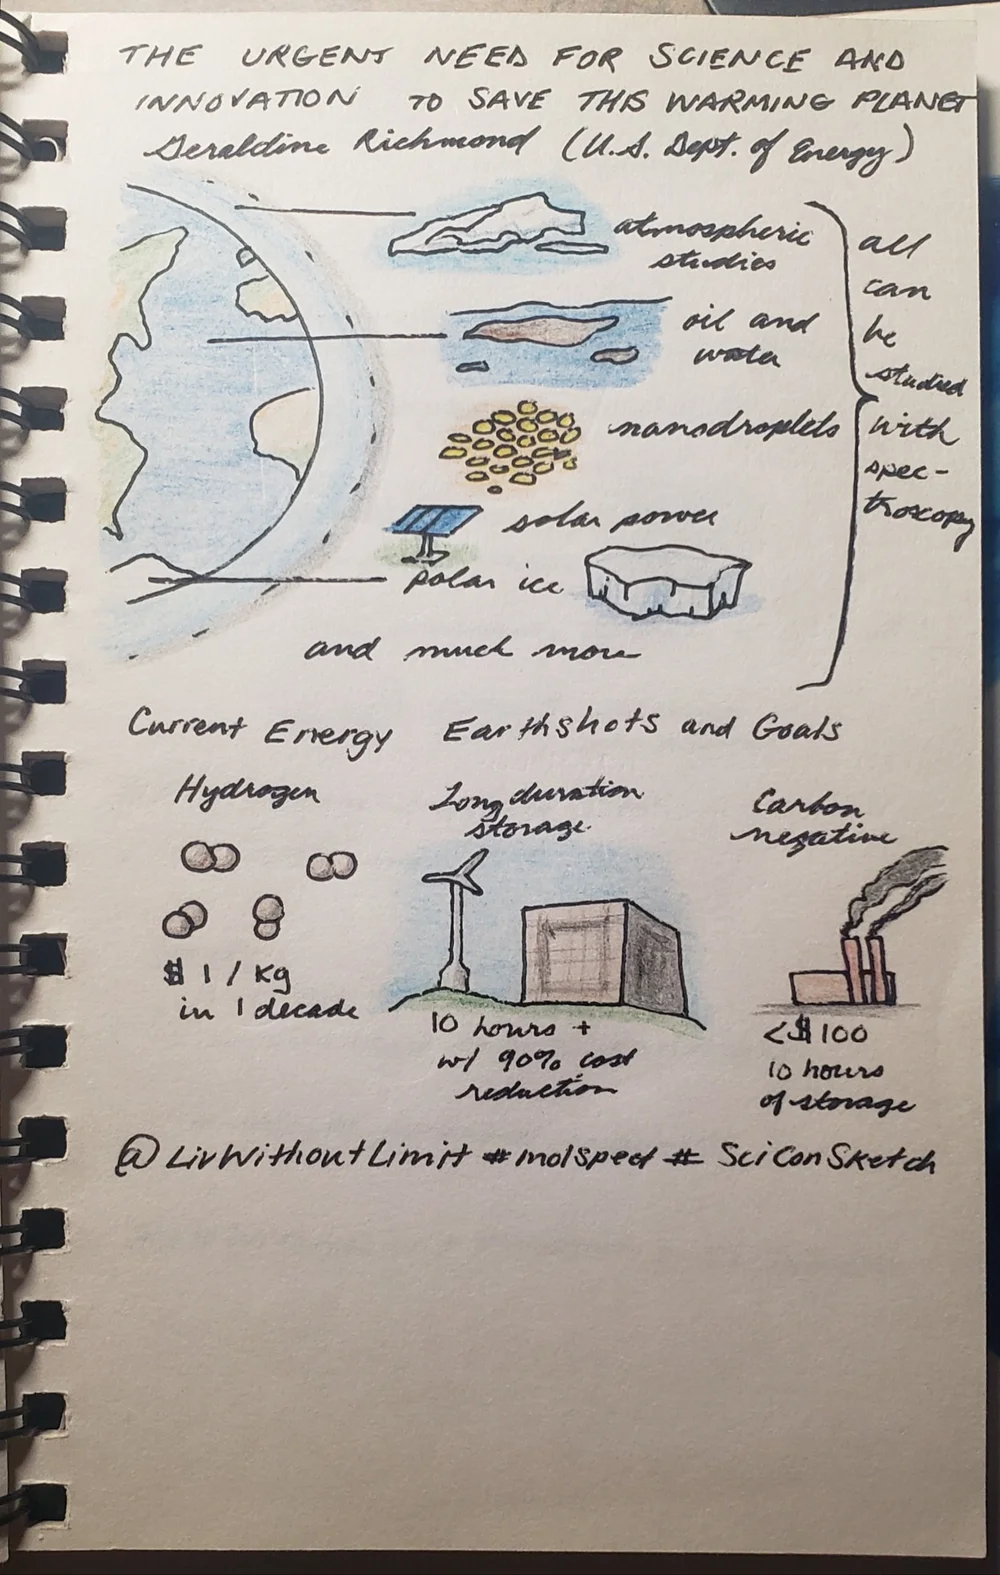 THE URGENT NEED FOR SCIENCE AND
INNOVATION TO SAVE THIS WARMING PLANET
Geraldine Richmond (U.S. Dept. of Energy)
atmospheric
studies
oil and
water
nanodroplets
solar power
polar ice
and much more
all
can
be
studied
with
spec-
troscopy
Current Energy Earthshots and Goals
Hydrogen
$1/kg
in 1 decade
Long duration
storage
10 hours +
w/ 90% cost
reduction
Carbon
negative
<$100
10 hours
of storage
@LivWithoutLimit #molspec #SciConSketch